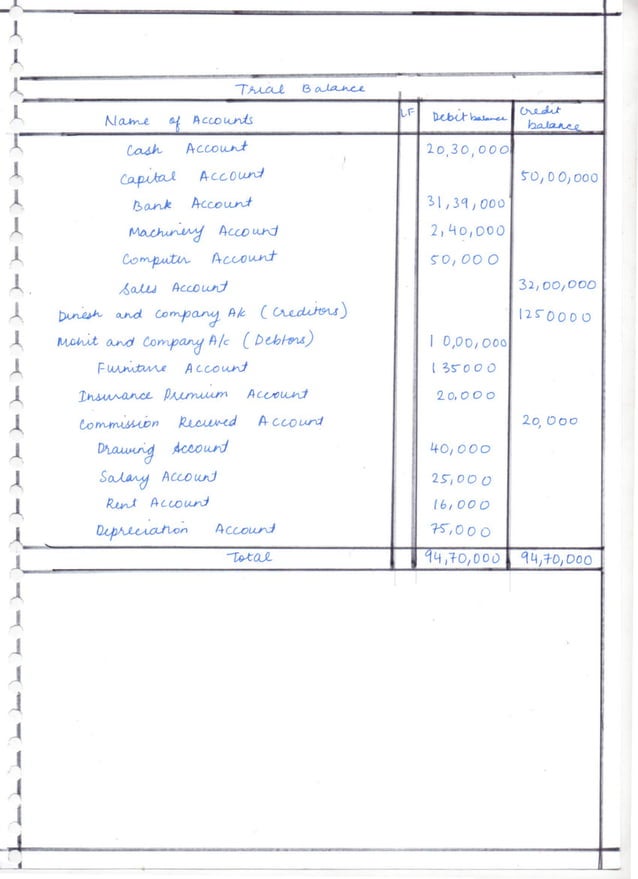 Trial Balance
Name of Accounts LF Debit balance Credit balance
Cash Account 20,30,000
Capital Account 50,00,000
Bank Account 31,39,000
Machinery Account 2,40,000
Computer Account 50,000
Sales Account 32,00,000
Dinesh and Company A/c (Creditors) 1250000
Mohit and Company A/c (Debtors) 10,00,000
Furniture Account 135000
Insurance Premium Account 20,000
Commission Recieved Account 20,000
Drawing Account 40,000
Salary Account 25,000
Rent Account 16,000
Depreciation Account 75,000
Total 94,70,000 94,70,000